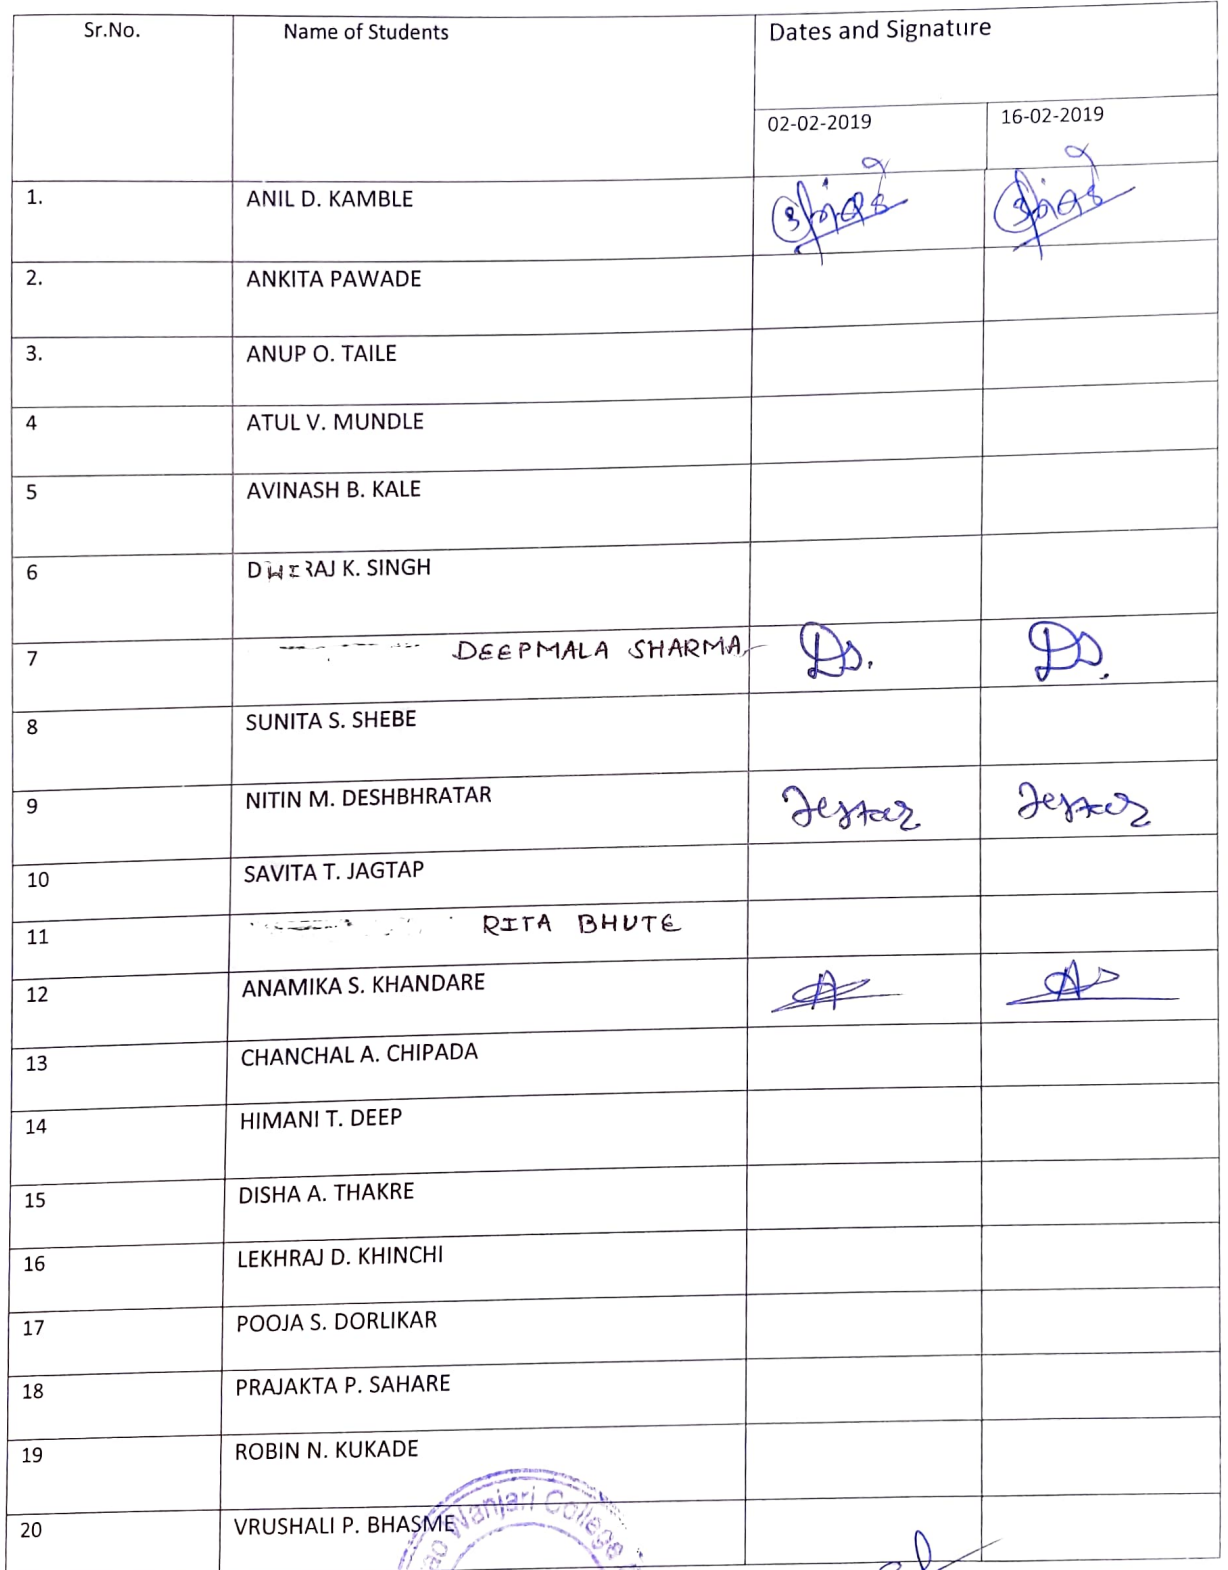 Sr.No. Name of Students Dates and Signature
02-02-2019 16-02-2019
1. ANIL D. KAMBLE
2. ANKITA PAWADE
3. ANUP O. TAILE
4 ATUL V. MUNDLE
5 AVINASH B. KALE
6 DHIRAJ K. SINGH
7 DEEPMALA SHARMA Ds. Ds.
8 SUNITA S. SHEBE
9 NITIN M. DESHBHRATAR
10 SAVITA T. JAGTAP
11 RITA BHUTE
12 ANAMIKA S. KHANDARE
13 CHANCHAL A. CHIPADA
14 HIMANI T. DEEP
15 DISHA A. THAKRE
16 LEKHRAJ D. KHINCHI
17 POOJA S. DORLIKAR
18 PRAJAKTA P. SAHARE
19 ROBIN N. KUKADE
20 VRUSHALI P. BHASME
Wanjari College